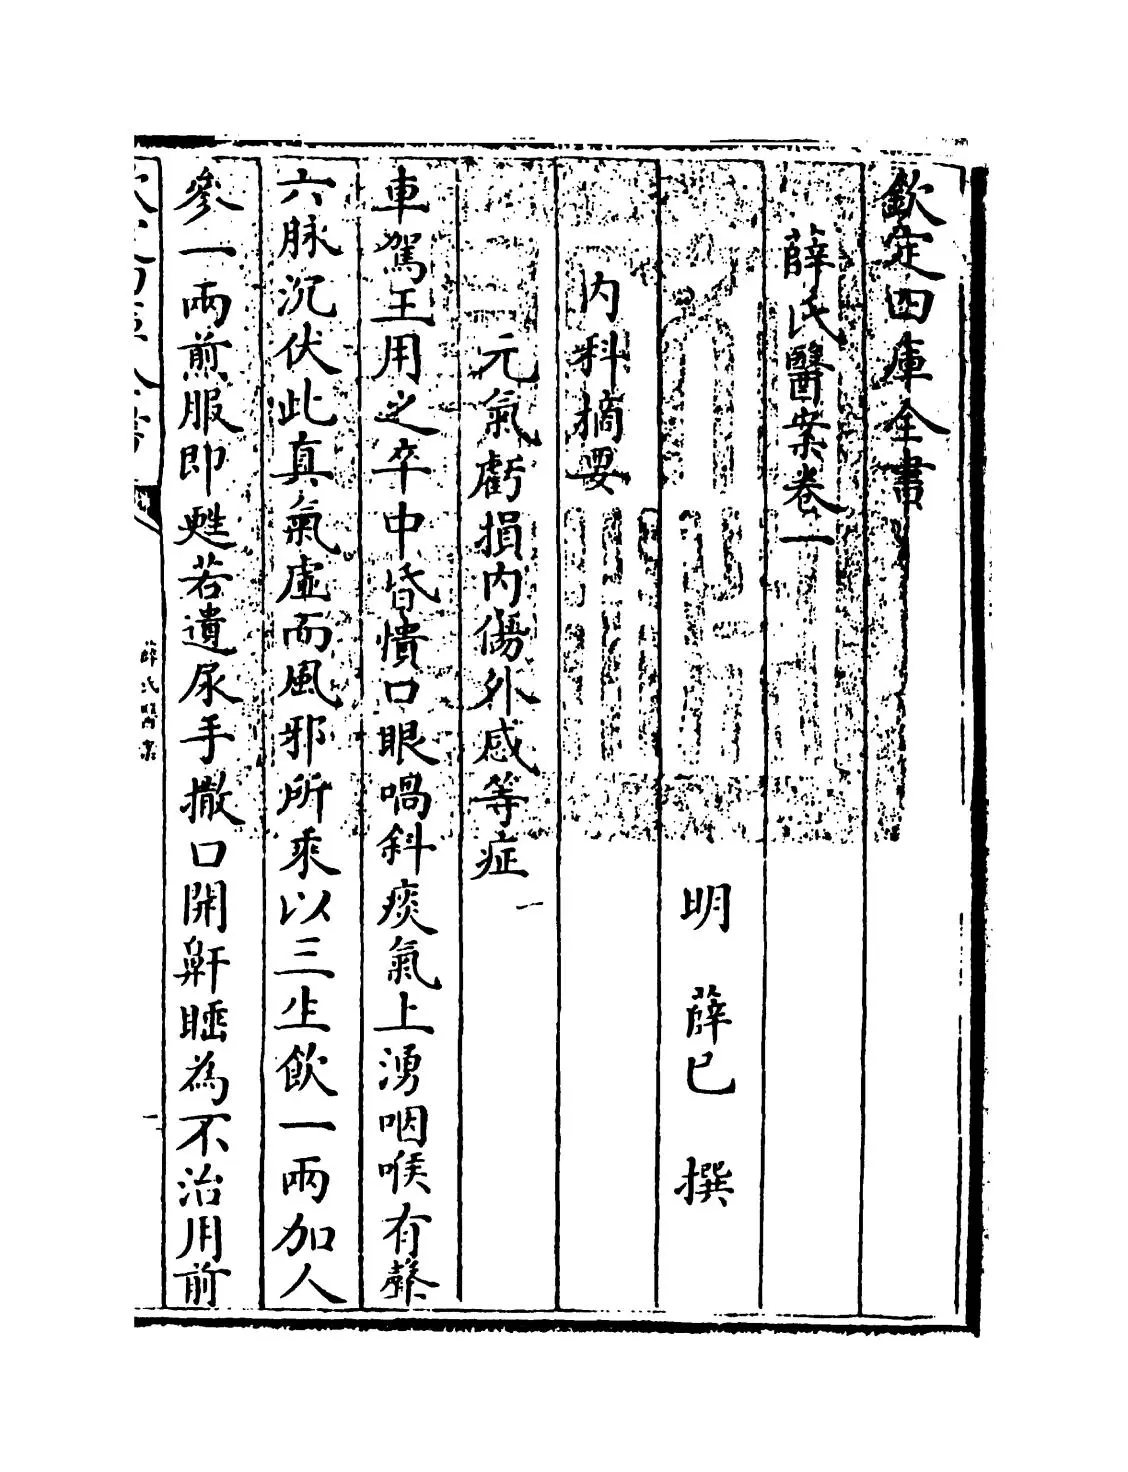 欽定四庫全書
薛氏醫案卷一
明 薛已 撰
內科摘要
元氣虧損內傷外感等症 一
車駕王用之卒中昏憒口眼喎斜痰氣上湧咽喉有聲
六脉沉伏此真氣虛而風邪所乘以三生飲一兩加人
參一兩煎服即甦若遺尿手撒口開鼾睡為不治用前
薛氏醫案
一